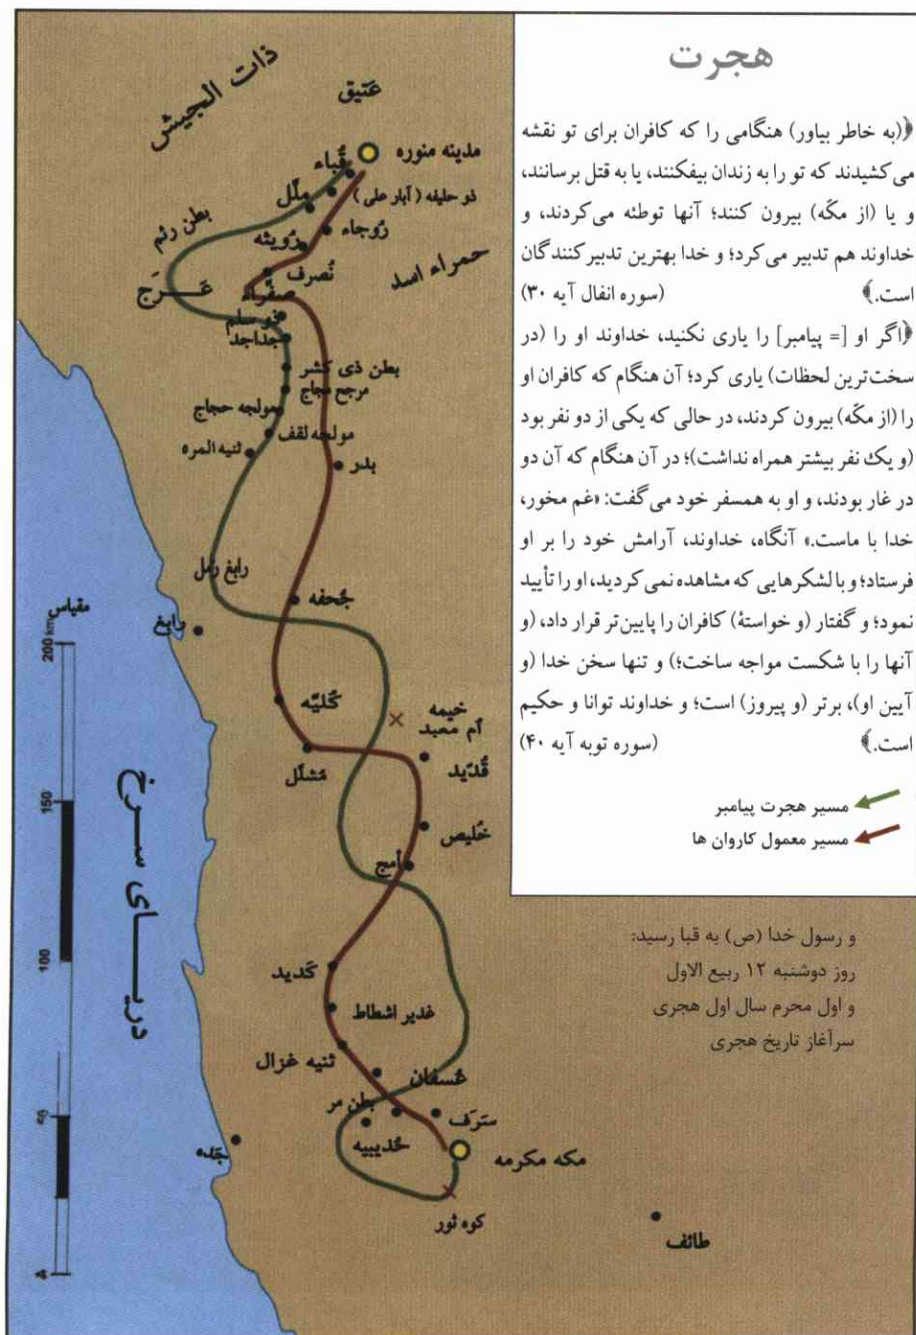 هجرت
﴿(به خاطر بیاور) هنگامی را که کافران برای تو نقشه
می‌کشیدند که تو را به زندان بیفکنند، یا به قتل برسانند،
و یا (از مکّه) بیرون کنند؛ آنها توطئه می‌کردند، و
خداوند هم تدبیر می‌کرد؛ و خدا بهترین تدبیرکنندگان
است.﴾ (سوره انفال آیه ۳۰)
﴿اگر او [= پیامبر] را یاری نکنید، خداوند او را (در
سخت‌ترین لحظات) یاری کرد؛ آن هنگام که کافران او
را (از مکّه) بیرون کردند، در حالی که یکی از دو نفر بود
(و یک نفر بیشتر همراه نداشت)؛ در آن هنگام که آن دو
در غار بودند، و او به همسفر خود می‌گفت: «غم مخور،
خدا با ماست.» آنگاه، خداوند، آرامش خود را بر او
فرستاد؛ و با لشکرهایی که مشاهده نمی‌کردید، او را تأیید
نمود؛ و گفتار (و خواستهٔ) کافران را پایین‌تر قرار داد، (و
آنها را با شکست مواجه ساخت؛) و تنها سخن خدا (و
آیین او)، برتر (و پیروز) است؛ و خداوند توانا و حکیم
است.﴾ (سوره توبه آیه ۴۰)
مسیر هجرت پیامبر
مسیر معمول کاروان ها
و رسول خدا (ص) به قبا رسید:
روز دوشنبه ۱۲ ربیع الاول
و اول محرم سال اول هجری
سرآغاز تاریخ هجری
ذات الجیش
عَتیق
مدینه منوره
قُباء
ذو حلیفه (آبار علی)
ملَل
بطن رئم
رَوحاء
رُویثه
حمراء اسد
نُصرف
عَـــرَج
صفراء
ذو سلم
جداجد
بطن ذی کشر
مرجح مجاج
مولجه حجاج
مولجه لقف
ثنیه المره
بدر
رابغ رمل
جُحفه
رابغ
کُلیّه
خیمه
اُم معبد
مُشلّل
قُدَید
خُلیص
اَمج
کَدید
غدیر اشطاط
ثنیه غزال
عُسفان
بطن مر
سَرَف
حُدیبیه
جَده
مکه مکرمه
کوه ثور
طائف
دریـــای ســـرخ
مقیاس
200 km
150
100
50